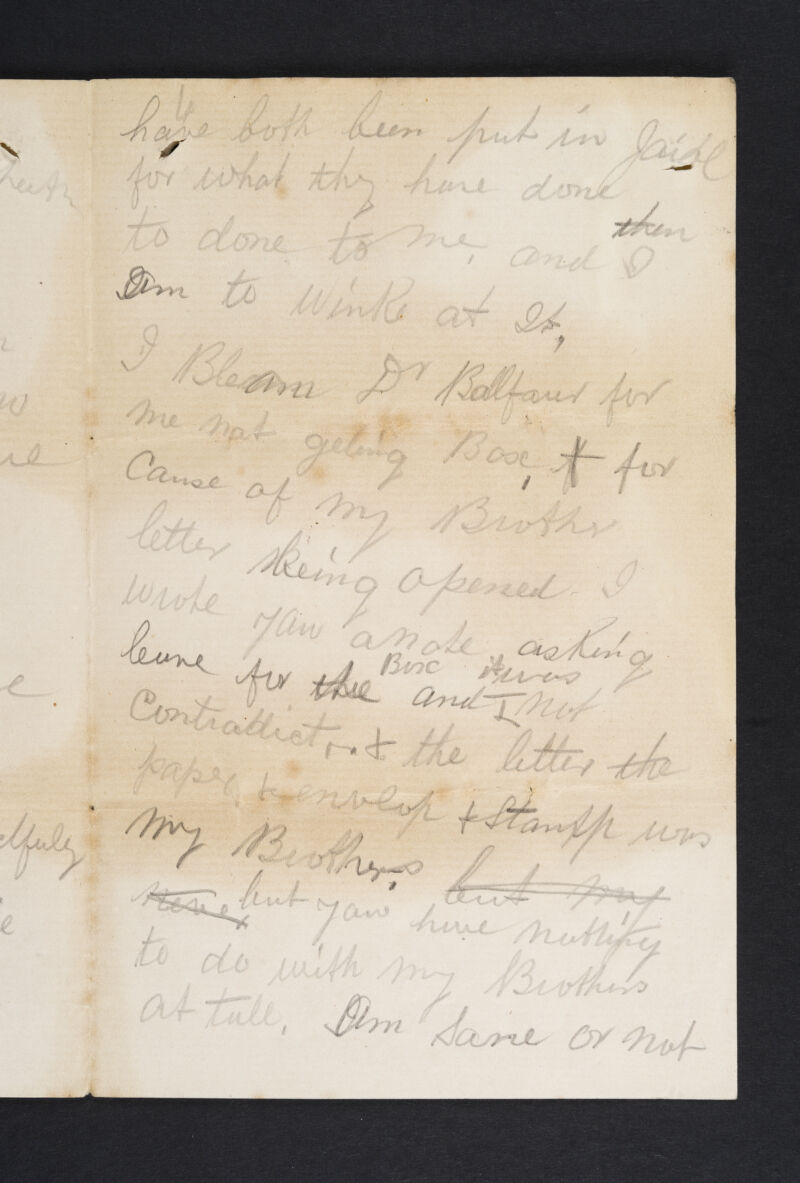 have both been put in Jaial
for what thy have done
to done to me, and then I
Am to Wink at It,
I Bleam Dr Balfaur for
me not geting Box, & for
Cause of my Brother
letter Being opened. I
wrote yaw a note, asking
leave for the Box and it was I not
Contradict, & the letter the
paper, & envelop & Stampp was
my Brothers, but my
never but yaw have nothing
to do with my Brothers
at tall, Am Sane or not